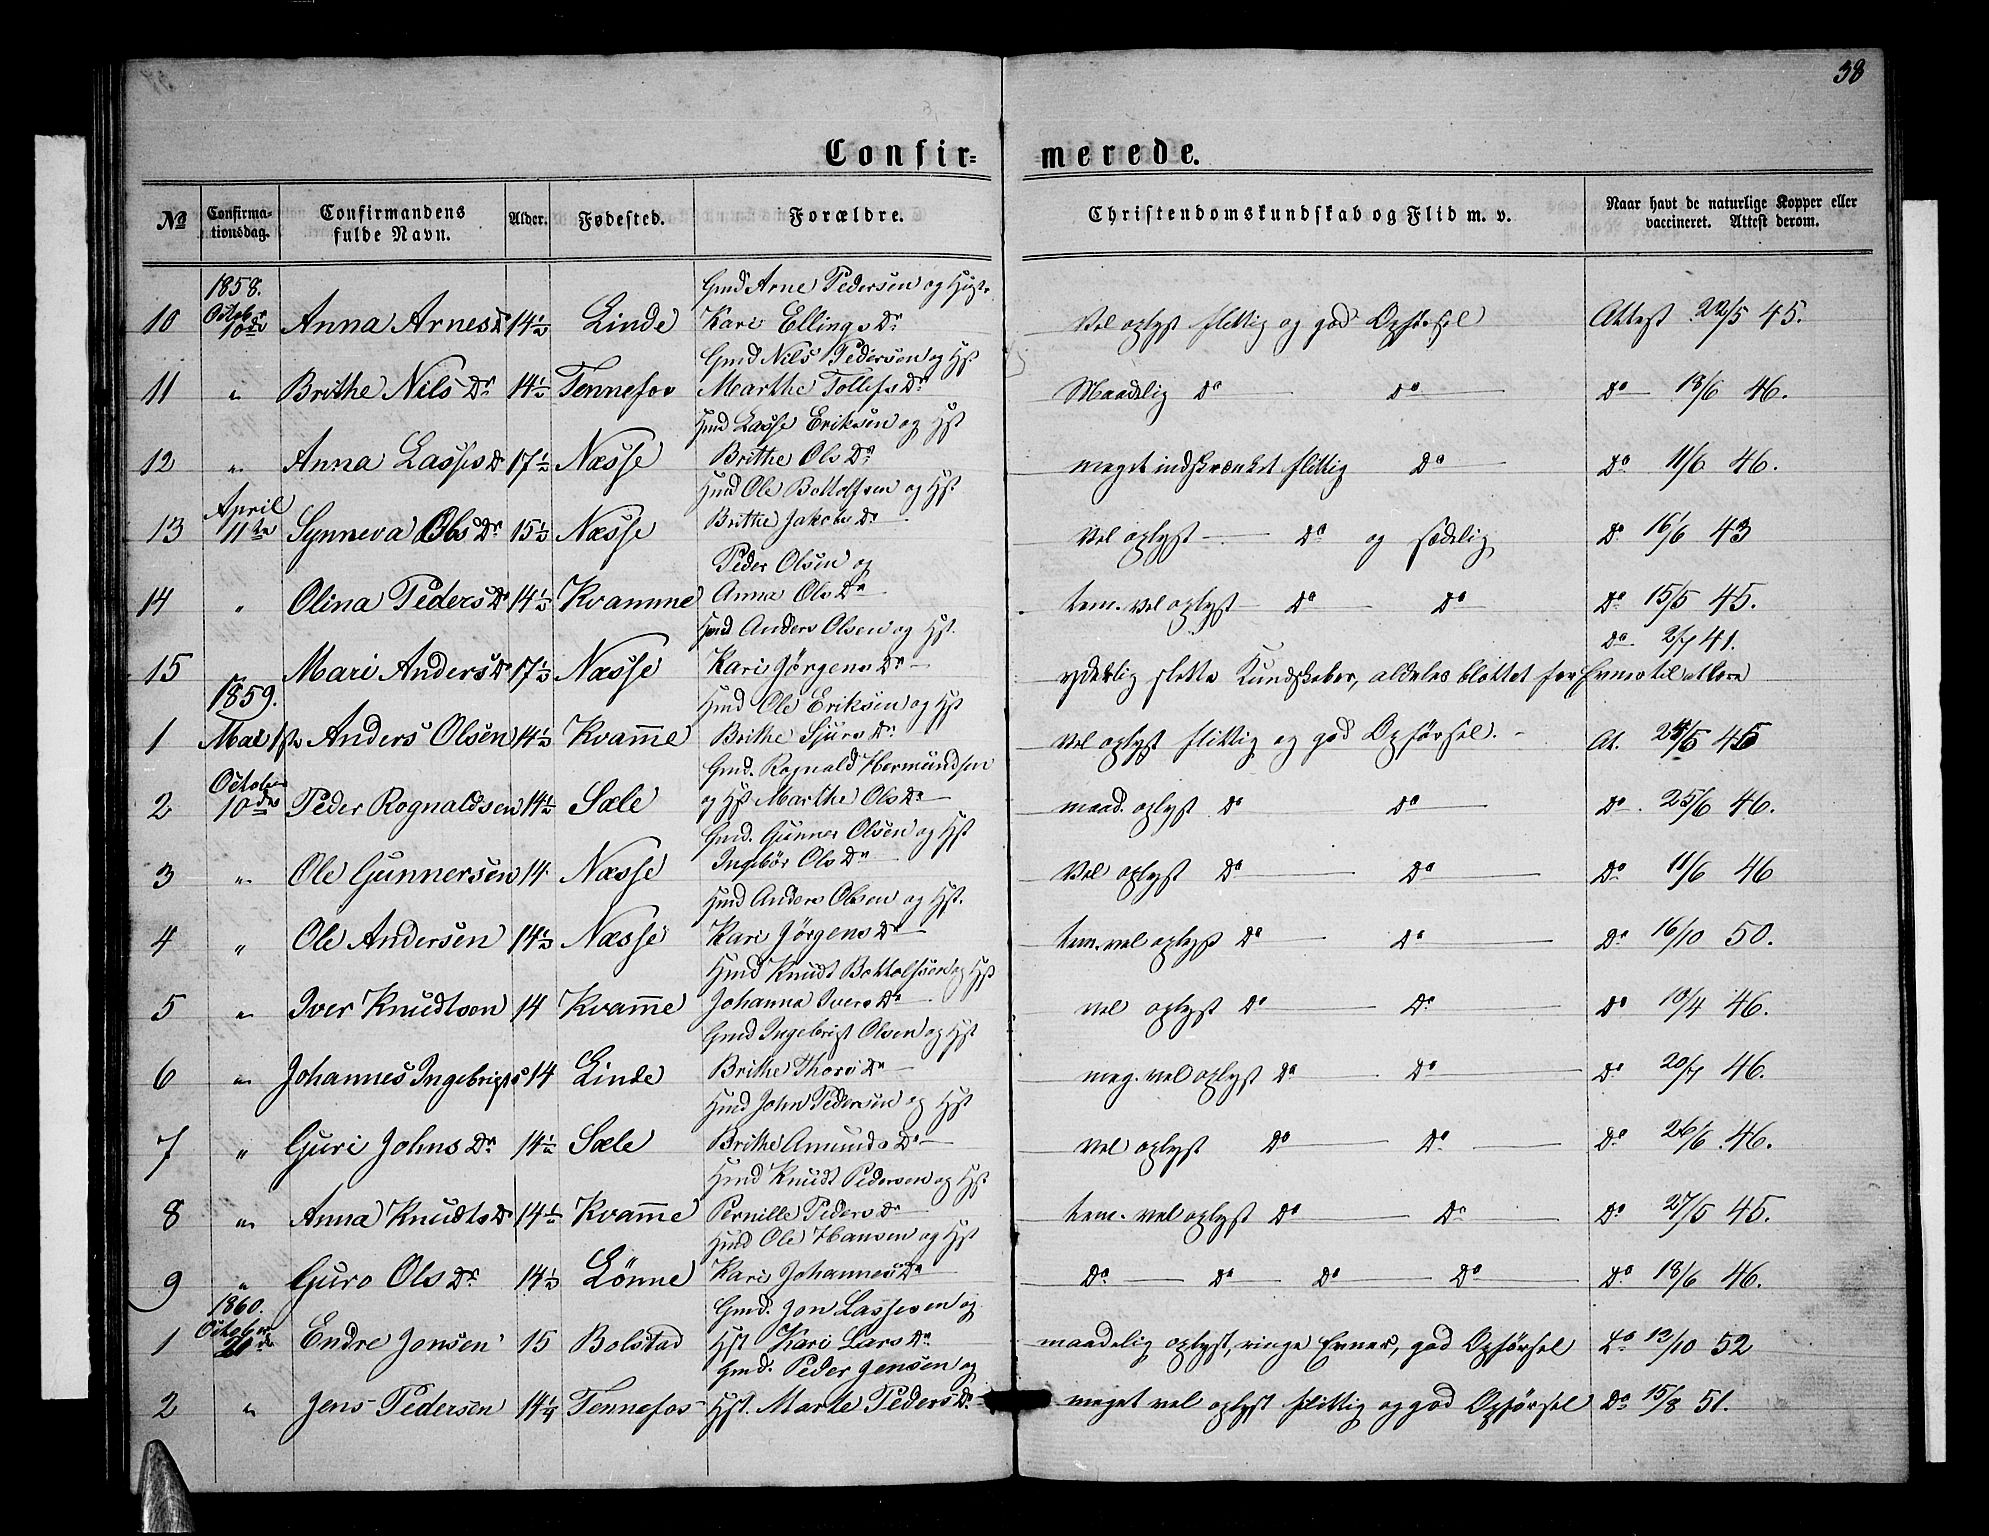 38
Confir= merede.
No
Confirma-
tionsdag.
Confirmandens
fulde Navn.
Alder.
Fødested.
Forældre.
Christendomskundskab og Flid m. v.
Naar havt de naturlige Kopper eller
vaccineret. Attest derom.
1858.
Gmd Arne Pedersen og Hustr
10 Octobr 10de Anna ArnesDr 14½ Linde Kari EllingsDr Vel oplyst flittig og god Opførsel Attest 22/5 45.
Gmd Nils Pedersen og Hst
11 " Brithe NilsDr 14½ Tennefos Marthe TollefsDr Maadelig Do Do Do 18/6 46.
Hmd Lasse Eriksen og Hst
12 " Anna LassesDr 17½ Næsse Brithe OlsDr meget indskrænket flittig Do Do 11/6 46.
Hmd Ole Bottolfsen og Hst
13 April 11te Synneva OlsDr 15½ Næsse Brithe JakobsDr Vel oplyst Do og sædelig Do 16/6 43
Peder Olsen og
14 " Olina PedersDr 14½ Kvamme Anna OlsDr tem. vel oplyst Do Do Do 15/5 45.
Hmd Anders Olsen og Hst.
Do 2/7 41.
15 Mari AndersDr 17½ Næsse Kari JørgensDr yderlig slette Kundskaber, aldeles blottet for Evner til
1859.
Hmd Ole Eriksen og Hst
1 Mai 1ste Anders Olsen 14½ Kvamme Brithe SjursDr Vel oplyst flittig og god Opførsel. At. 24/5 45
Gmd. Rognald Hermundsen
2 October 10des Peder Rognaldsen 14½ Sæle og Hst Marthe OlsDr maad. oplyst Do Do Do. 25/6 46.
Gmd. Gunner Olsen og Hst
3 " Ole Gunnersen 14 Næsse Ingebør OlsDr Vel oplyst Do Do Do 11/6 46
Hmd Anders Olsen og Hst.
4 " Ole Andersen 14½ Næsse Kari JørgensDr tem. vel oplyst Do Do Do 16/10 50.
Hmd Knudt Bottolfsen og Hst
5 " Iver Knudtson 14 Kvamme Johanna IversDr vel oplyst Do Do Do 10/4 46.
Gmd Ingebrigt Olsen og Hst
6 " Johannes Ingebrigts 14 Linde Brithe ThorsDr meg. vel oplyst Do Do Do 20/7 46.
Hmd John Pedersen og Hst
7 " Guri JohnsDr 14½ Sæle Brithe AmundsDr vel oplyst Do Do Do 26/6 46.
Hmd Knudt Pedersen og Hst
8 " Anna KnudtsDr 14½ Kvamme Pernille PedersDr tem. vel oplyst Do Do Do 27/5 45.
Hmd Ole Hansen og Hst
9 " Guro OlsDr 14½ Lønne Kari JohannesDr Do Do Do Do Do 18/6 46.
1860.
Gmd. Jon Lassesen og
1 October Endre Jonsen 15 Bolstad Hst Kari LarsDr maadelig oplyst, ringe Evner, god Opførsel Do 12/10 52
Gmd. Peder Jensen og
2 " Jens Pedersen 14¼ Tennefos Hst. Marte PedersDr meget vel oplyst flittig og god Opførsel Do 15/8 51.